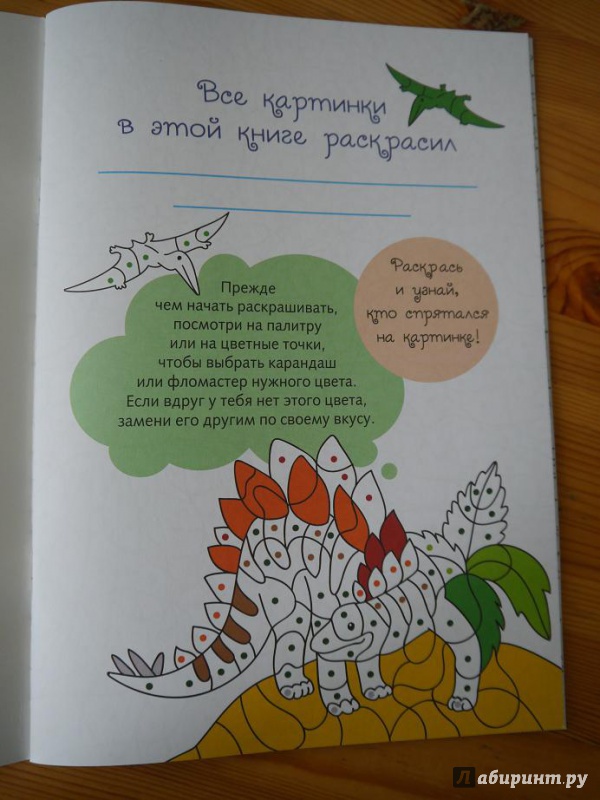 Все картинки
в этой книге раскрасил
Раскрась
и узнай,
кто спрятался
на картинке!
Прежде
чем начать раскрашивать,
посмотри на палитру
или на цветные точки,
чтобы выбрать карандаш
или фломастер нужного цвета.
Если вдруг у тебя нет этого цвета,
замени его другим по своему вкусу.
Лабиринт.ру